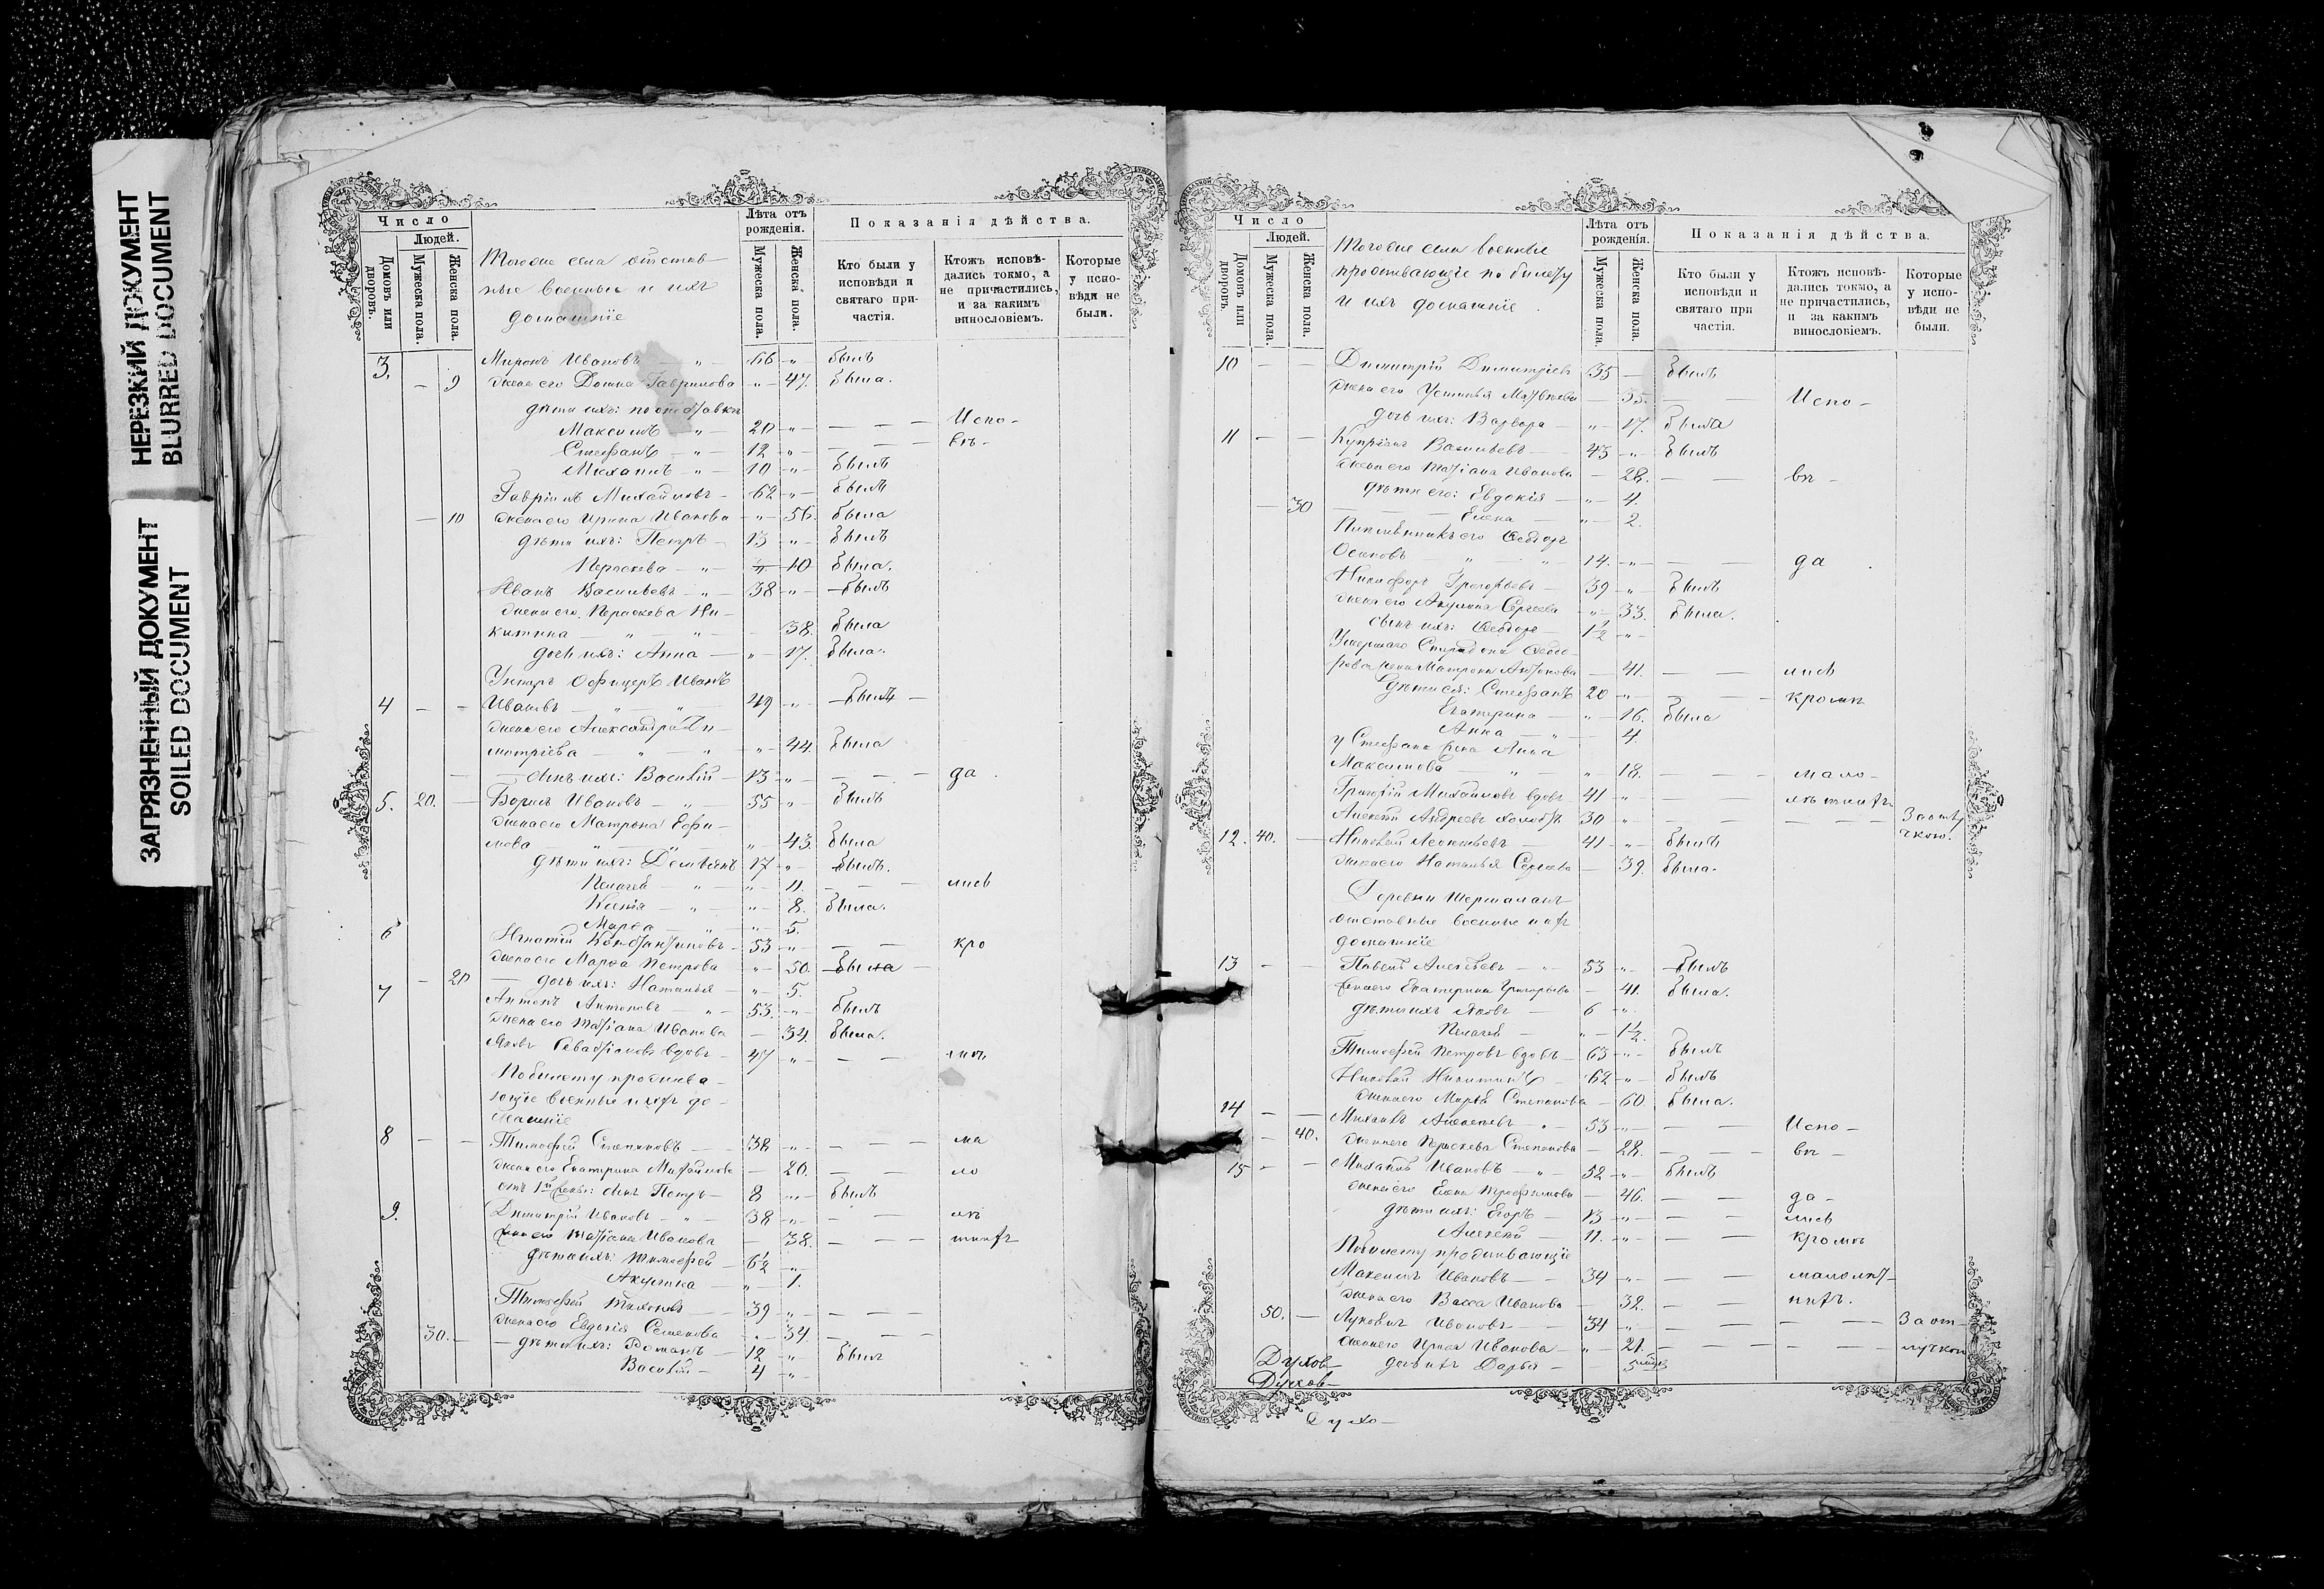 НЕРЕЗКИЙ ДОКУМЕНТ
BLURRED DOCUMENT
ЗАГРЯЗНЕННЫЙ ДОКУМЕНТ
SOILED DOCUMENT
Число
Людей.
Домовъ или дворовъ.
Мужеска пола.
Женска пола.
Тогоже села отстав-
ные военные и ихъ
домашніе
Лѣта отъ рожденія.
Мужеска пола.
Женска пола.
Показанія дѣйства.
Кто были у исповѣди и святаго при-частія.
Ктожъ исповѣ-дались токмо, а не причастились, и за какимъ винословіемъ.
Которые у испо-вѣди не были.
3. Миронъ Ивановъ — " — 66 " былъ
— 9 жена его Домна Гаврилова " — 47. была.
дѣти ихъ: по отставкѣ
Максимъ — " — 20 — " — — — — Испо-
Стефанъ — " — 12 — " — — — — вѣ-
Михаилъ — " — 10 — " — былъ
Гавріилъ Михайловъ — 62 — " — былъ
— 10 жена его Ирина Иванова — " — 56. была
дѣти ихъ: Петръ — 13 — " — былъ
Параскева — " — 10 была.
Иванъ Васильевъ — " — 38 — " — былъ
жена его Параскева Ни-
китина — " — " — 38. была
дочь ихъ: Анна — " — 17. была.
Унтеръ Офицеръ Иванъ
4 — — Ивановъ — " — " — 49 — " — былъ —
жена его Александра Ди-
митріева — " — " — " — 44. была
— сынъ ихъ: Василій — 13 — " — — — — да
5. 20. — Борисъ Ивановъ — " — 55 — " — былъ
жена его Матрона Ефи-
мова " — 43. была
дѣти ихъ: Демьянъ 17 — " — былъ.
Пелагея — " — " — 11. — — — лись
Ксенія — " — " — 8. была.
Марѳа — " — " — 5.
6 Игнатій Константиновъ — 53 — " — — — кро
жена его Марѳа Петрова " — 50. была —
— 20 — дочь ихъ: Наталья — " — 5.
7 Антонъ Антоновъ " — 53. — " — былъ
жена его Татіана Иванова — 34. была.
Яковъ Севастіановъ вдовъ — 47 — " — — —
По билету прожива-
ющіе военные и ихъ до-
машніе
8 — — Тимоѳей Степановъ — 38 — " — — — — ма
жена его Екатерина Михайлова — 20. — — ло
отъ 1й жены: сынъ Петръ — 8 — " — былъ
9. Димитрій Ивановъ — " — 38 — " — — — лѣ
жена его Татіана Иванова — 38. — — — тнихъ
дѣти ихъ: Тимоѳей — 6½ — "
Акулина " — 1.
Тимоѳей Тихоновъ — 39 — " — — —
жена его Евдокія Семенова — " — 34 — — —
30. — — дѣти ихъ: Романъ — 12 — " — былъ
Василій — 4 — "
Число
Людей.
Домовъ или дворовъ.
Мужеска пола.
Женска пола.
Тогоже села военные
проживающіе по билету
и ихъ домашніе.
Лѣта отъ рожденія.
Мужеска пола.
Женска пола.
Показанія дѣйства.
Кто были у исповѣди и святаго при частія.
Ктожъ исповѣ-дались токмо, а не причастились, и за какимъ винословіемъ.
Которые у испо-вѣди не были.
10 — — Димитрій Димитріевъ 35 — былъ
жена его Устинья Матвѣева — 35. — — Испо-
дочь ихъ: Варвара — " — 17. была
11 — — Купріянъ Васильевъ — 45 — " — былъ
жена его Татіана Иванова — 28. — — вѣ-
дѣти его: Евдокія — " — 4.
— 30 — — — Елена — " — 2.
его Ѳеодоръ
Осиповъ " " 14. — " — — — да
Никифоръ Григорьевъ — 39 — " — былъ
жена его Акулина Сергеева — " — 33. была.
сынъ ихъ: Ѳеодоръ — 1½ — "
Умершаго Спиридона Ѳеодо-
рова жена Матрона Антонова — 41. — — лись
дѣти ея: Стефанъ 20 — " — — — кромѣ
Екатерина — " — 16. была
Анна — " — 4.
у Стефана жена Анна
Максимова — " — " — 18. — — мало-
Григорій Михайловъ вдовъ 41 — " — — — лѣтнихъ
Алексѣй Андреевъ холостъ 30 — " — — — — — За отлу
12. 40. — Николай Леонтьевъ — 41 — " — былъ чкою.
жена его Наталья Сергеева — 39. была.
Деревни
отставные военные и ихъ
домашніе
13 — — Павелъ Алексѣевъ — " — 53 — " — былъ
жена его Екатерина Григорьева — 41. была.
дѣти ихъ Яковъ — 6 — "
Пелагея — " — 1½.
Тимоѳей Петровъ вдовъ — 63 — " — былъ
Николай Никитинъ — 62 — " — былъ
жена его Марѳа Степанова — 60. была.
14 — — Михаилъ Алексѣевъ — " — 53 — " — — — Испо-
— 40. жена его Параскева Степанова — 28. — — — вѣ-
15 — — Михаилъ Ивановъ — " — 52 — " — былъ
жена его Елена Трофимова — 46. — — да-
дѣти ихъ: Егоръ — 13 — " — — — лись
Алексѣй 11. — " — — — кромѣ
По билету проживающіе
Максимъ Ивановъ — — 34 — " — — — малолѣт-
жена его Васса Иванова — 32. — — нихъ.
50. — Ивановъ — 34 — " — — — — — За от-
жена его Иванова " — 21. — — — — — лучкою
дочь ихъ Дарья — 5 мѣс.
Духов-
Духов-
Духо-